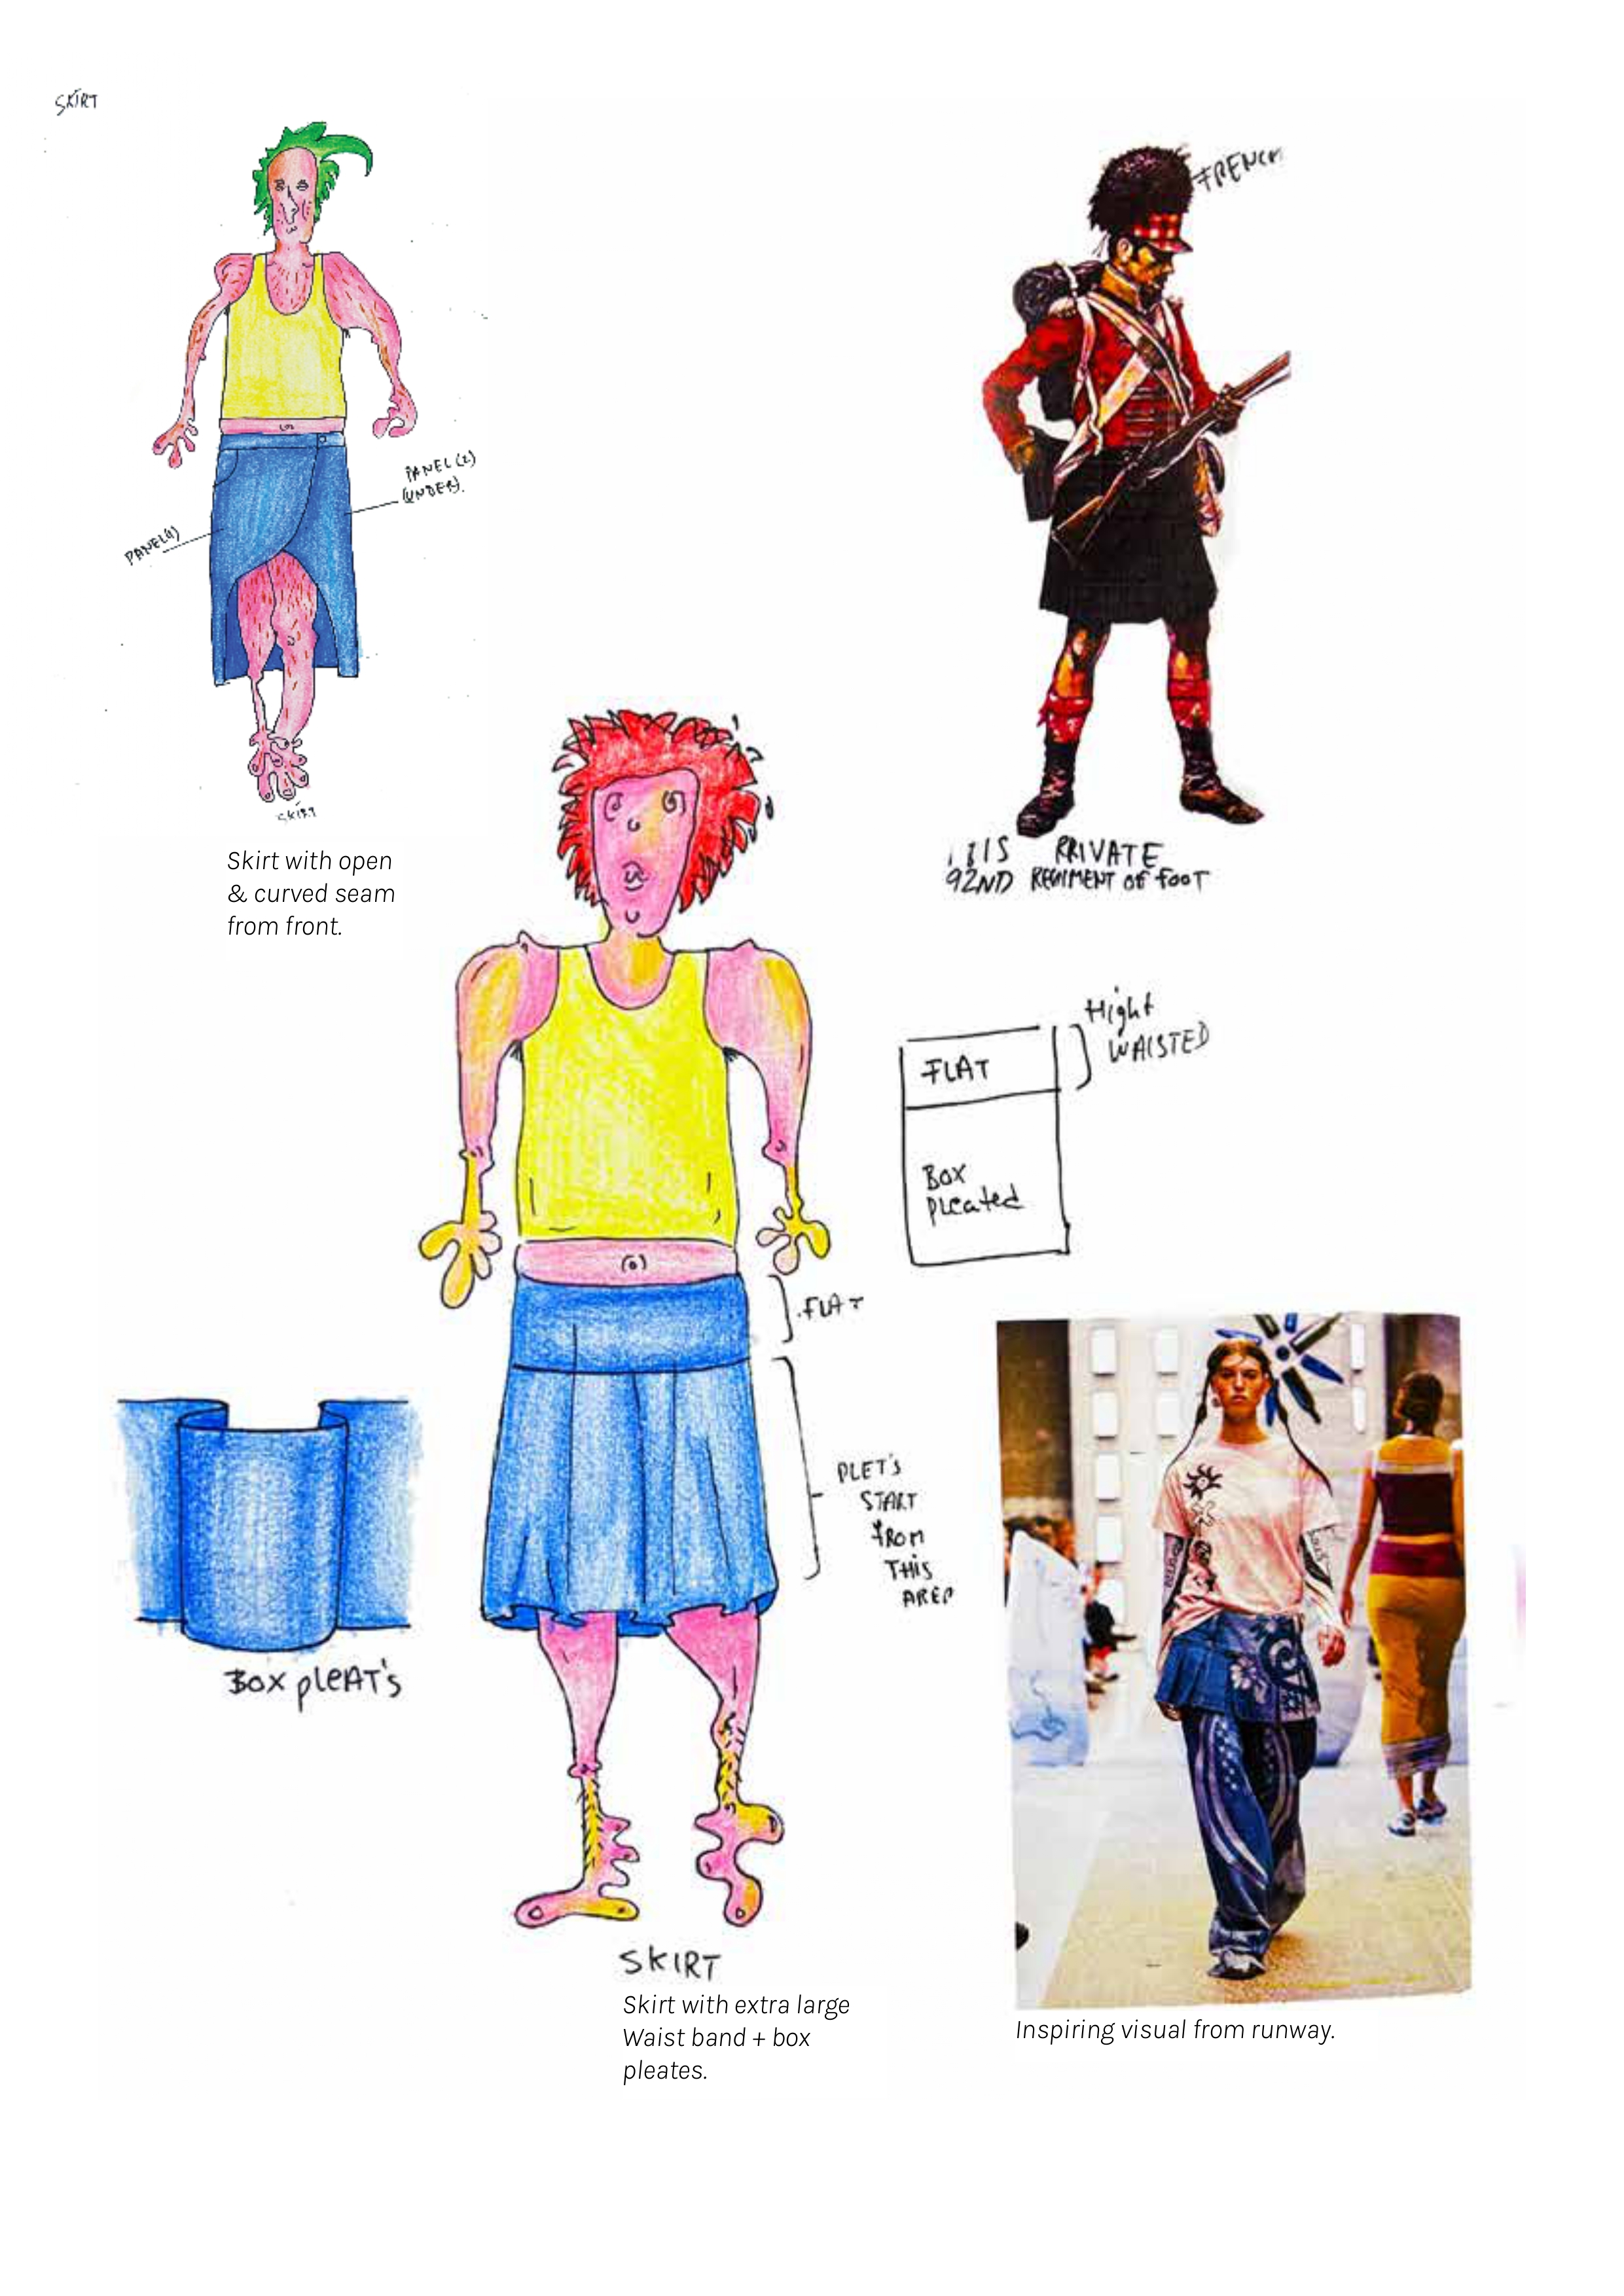 SKIRT
FRENCH
PANEL (2)
(UNDER).
PANEL(1)
SKIRT
Skirt with open
& curved seam
from front.
1815 PRIVATE
92ND REGIMENT OF FOOT
Hight
WAISTED
FLAT
Box
pleated
.FLAT
PLET'S
START
FROM
THIS
AREA
BOX plEAT's
SKIRT
Skirt with extra large
Waist band + box
pleates.
Inspiring visual from runway.